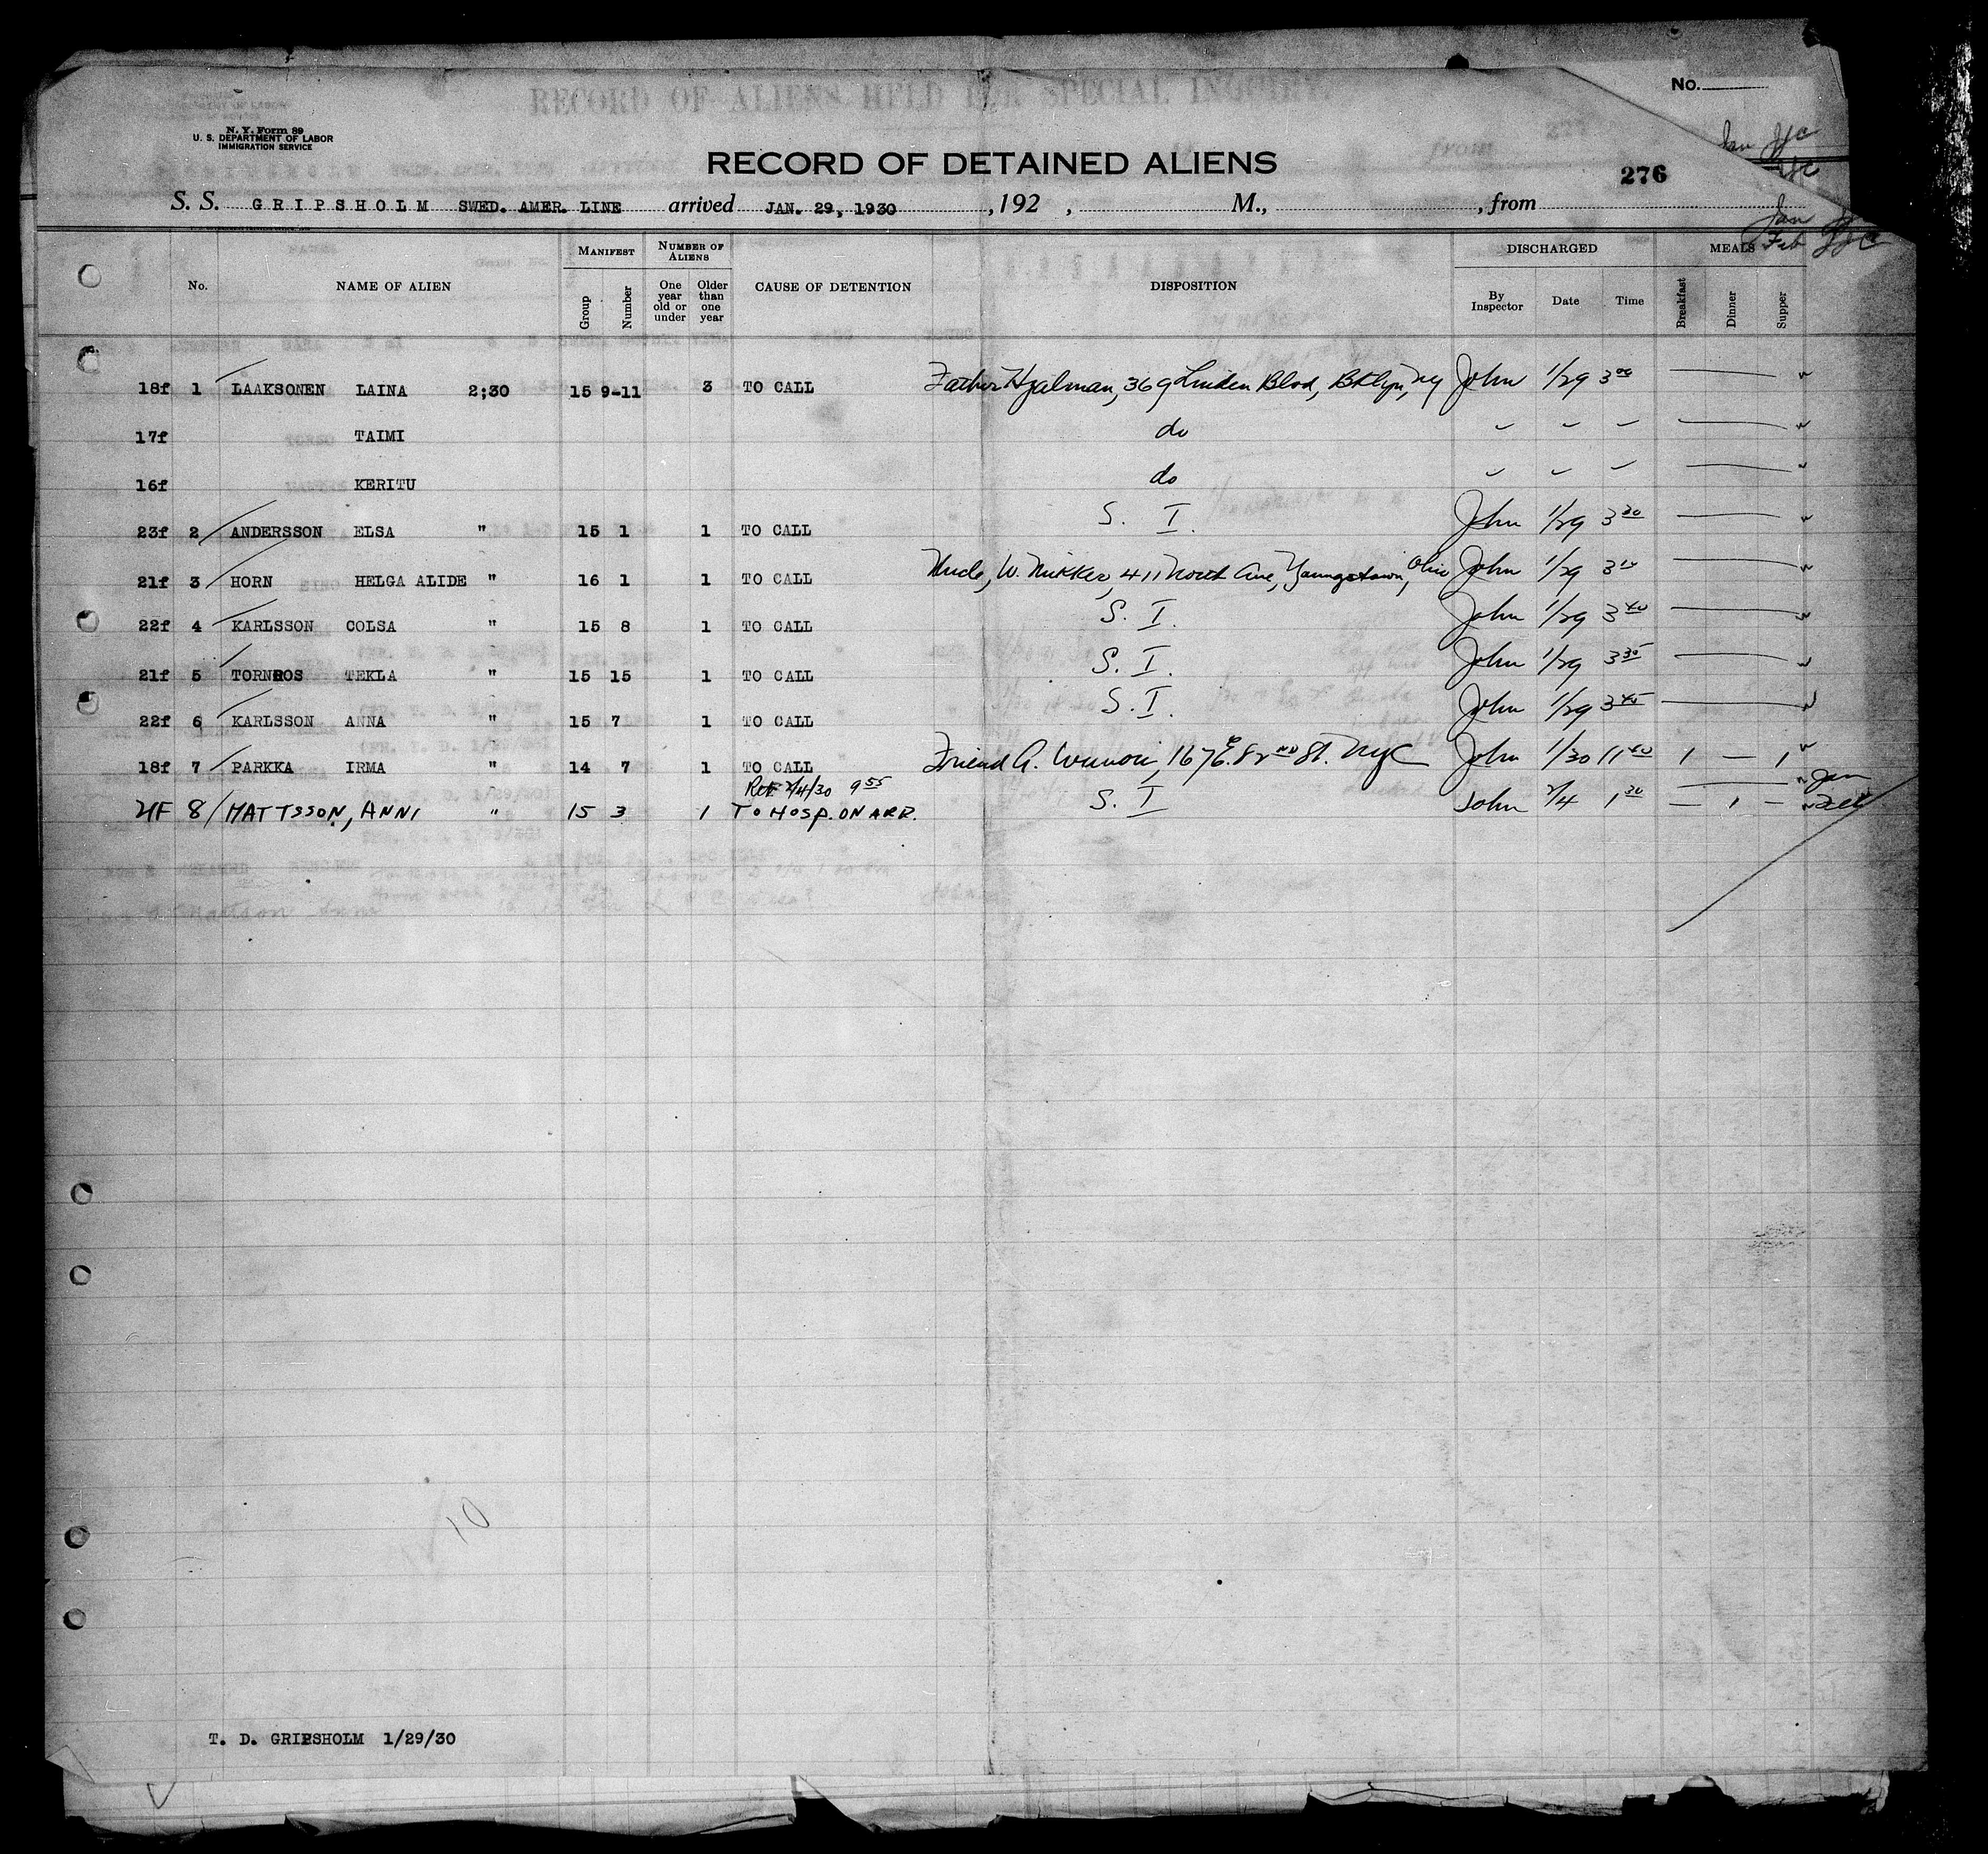 No.
N. Y. Form 89
U. S. DEPARTMENT OF LABOR
IMMIGRATION SERVICE
RECORD OF ALIENS HELD FOR SPECIAL INQUIRY
RECORD OF DETAINED ALIENS
276
S. S. GRIPSHOLM SWED. AMER. LINE arrived JAN. 29, 1930, 192 , M., , from
Jan
Feb
No. NAME OF ALIEN MANIFEST NUMBER OF ALIENS CAUSE OF DETENTION DISPOSITION DISCHARGED MEALS
Group Number One year old or under Older than one year By Inspector Date Time Breakfast Dinner Supper
18f 1 LAAKSONEN LAINA 2;30 15 9-11 3 TO CALL Father Hjalman, 369 Linden Blvd, Bklyn, NY John 1/29 3 00
17f TAIMI do
16f KERITU do
23f 2 ANDERSSON ELSA " 15 1 1 TO CALL S. I. John 1/29 3 30
21f 3 HORN HELGA ALIDE " 16 1 1 TO CALL Uncle, W. Nikker, 411 North Ave, Youngstown, Ohio John 1/29 3 10
22f 4 KARLSSON COLSA " 15 8 1 TO CALL S. I. John 1/29 3 40
21f 5 TORNROS TEKLA " 15 15 1 TO CALL S. I. John 1/29 3 35
22f 6 KARLSSON ANNA " 15 7 1 TO CALL S. I. John 1/29 3 45
18f 7 PARKKA IRMA " 14 7 1 TO CALL Friend A. 167 E. 82ND St. NYC John 1/30 11 40 1 — 1
Ret 2/4/30 9 55 Jan
21F 8 MATTSSON, ANNI " 15 3 1 TO HOSP. ON ARR. S. I John 2/4 1 30 — 1 — Feb
10
T. D. GRIPSHOLM 1/29/30